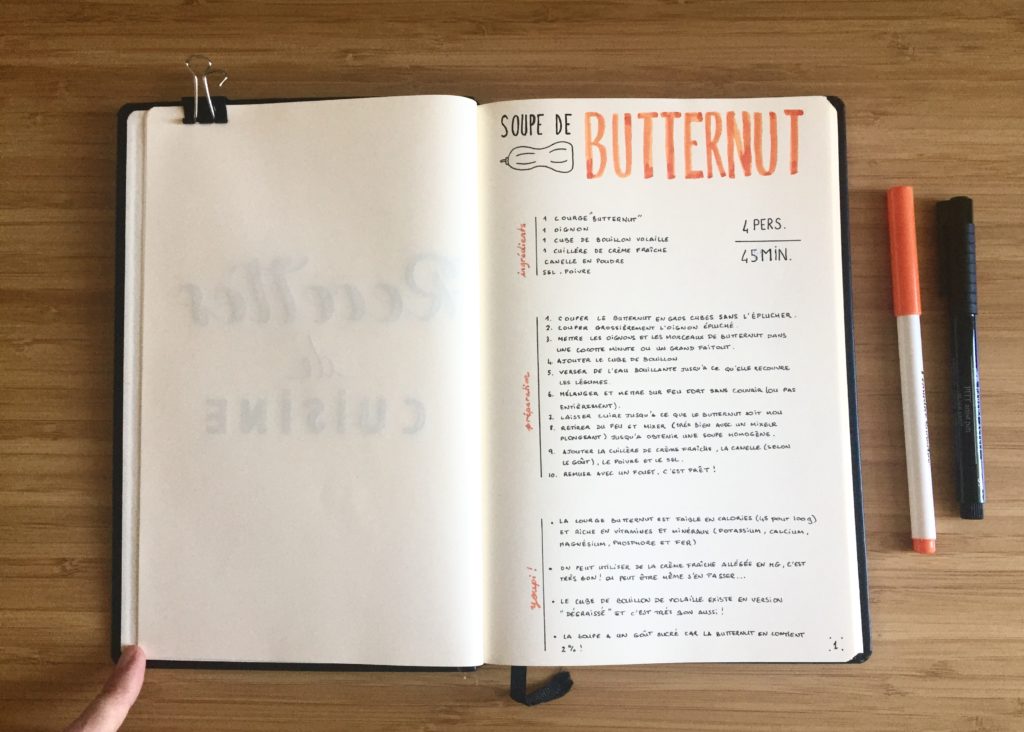 SOUPE DE
BUTTERNUT
ingrédients
1 COURGE "BUTTERNUT"
1 OIGNON
1 CUBE DE BOUILLON VOLAILLE
1 CUILLÈRE DE CRÈME FRAÎCHE
CANELLE EN POUDRE
SEL . POIVRE
4 PERS.
45 MIN.
préparation
1. COUPER LE BUTTERNUT EN GROS CUBES SANS L'ÉPLUCHER.
2. COUPER GROSSIÈREMENT L'OIGNON ÉPLUCHÉ.
3. METTRE LES OIGNONS ET LES MORCEAUX DE BUTTERNUT DANS
UNE COCOTTE MINUTE OU UN GRAND FAITOUT.
4. AJOUTER LE CUBE DE BOUILLON
5. VERSER DE L'EAU BOUILLANTE JUSQU'À CE QU'ELLE RECOUVRE
LES LÉGUMES.
6. MÉLANGER ET METTRE SUR FEU FORT SANS COUVRIR (OU PAS
ENTIÈREMENT).
7. LAISSER CUIRE JUSQU'À CE QUE LE BUTTERNUT SOIT MOU
8. RETIRER DU FEU ET MIXER (TRÈS BIEN AVEC UN MIXEUR
PLONGEANT) JUSQU'À OBTENIR UNE SOUPE HOMOGÈNE.
9. AJOUTER LA CUILLÈRE DE CRÈME FRAÎCHE, LA CANELLE (SELON
LE GOÛT), LE POIVRE ET LE SEL.
10. REMUER AVEC UN FOUET, C'EST PRÊT !
youpi !
• LA COURGE BUTTERNUT EST FAIBLE EN CALORIES (45 pour 100g)
ET RICHE EN VITAMINES ET MINÉRAUX (POTASSIUM, CALCIUM,
MAGNÉSIUM, PHOSPHORE ET FER)
• ON PEUT UTILISER DE LA CRÈME FRAÎCHE ALLÉGÉE EN MG, C'EST
TRÈS BON ! OU PEUT ÊTRE MÊME S'EN PASSER...
• LE CUBE DE BOUILLON DE VOLAILLE EXISTE EN VERSION
"DÉGRAISSÉ" ET C'EST TRÈS BON AUSSI !
• LA SOUPE A UN GOÛT SUCRÉ CAR LA BUTTERNUT EN CONTIENT
2% !
1
Recettes
de
CUISINE